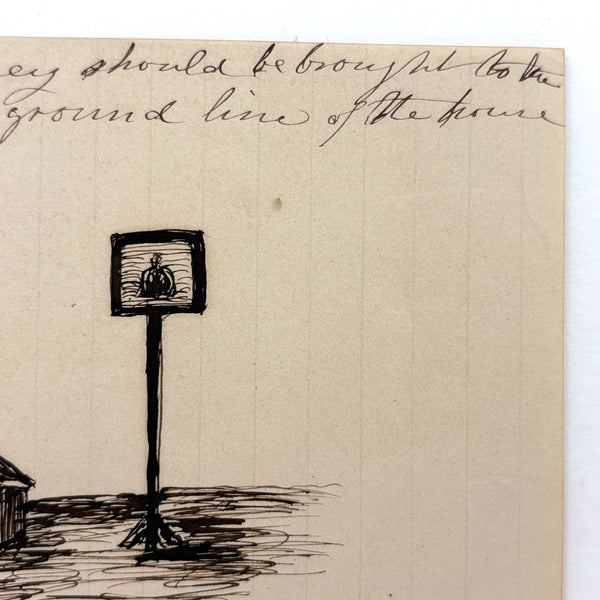 ey should be brought to the
ground line of the house